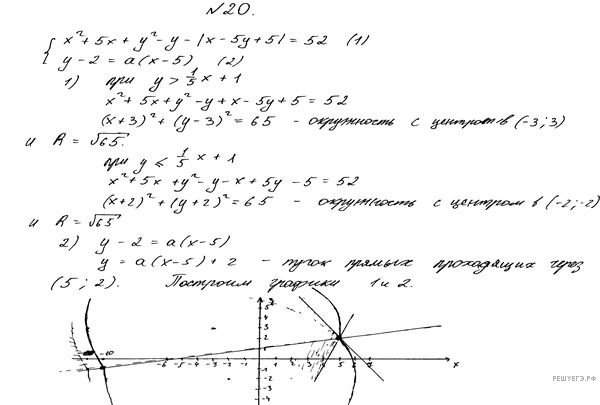 №20.
x²+5x+y²-y-|x-5y+5|=52 (1)
y-2=a(x-5) (2)
1) при y>1/5x+1
x²+5x+y²-y+x-5y+5=52
(x+3)²+(y-3)²=65 - окружность с центром в (-3;3)
и R=√65.
при y⩽1/5x+1
x²+5x+y²-y-x+5y-5=52
(x+2)²+(y+2)²=65 - окружность с центром в (-2;-2)
и R=√65
2) y-2=a(x-5)
y=a(x-5)+2 - пучок прямых проходящих через
(5;2). Построим графики 1 и 2.
5
4
3
2
1
-10 -6 -5 -4 -3 -2 -1 1 2 3 4 5 6 7 x
-1
-2
-4
РЕШУЕГЭ.РФ